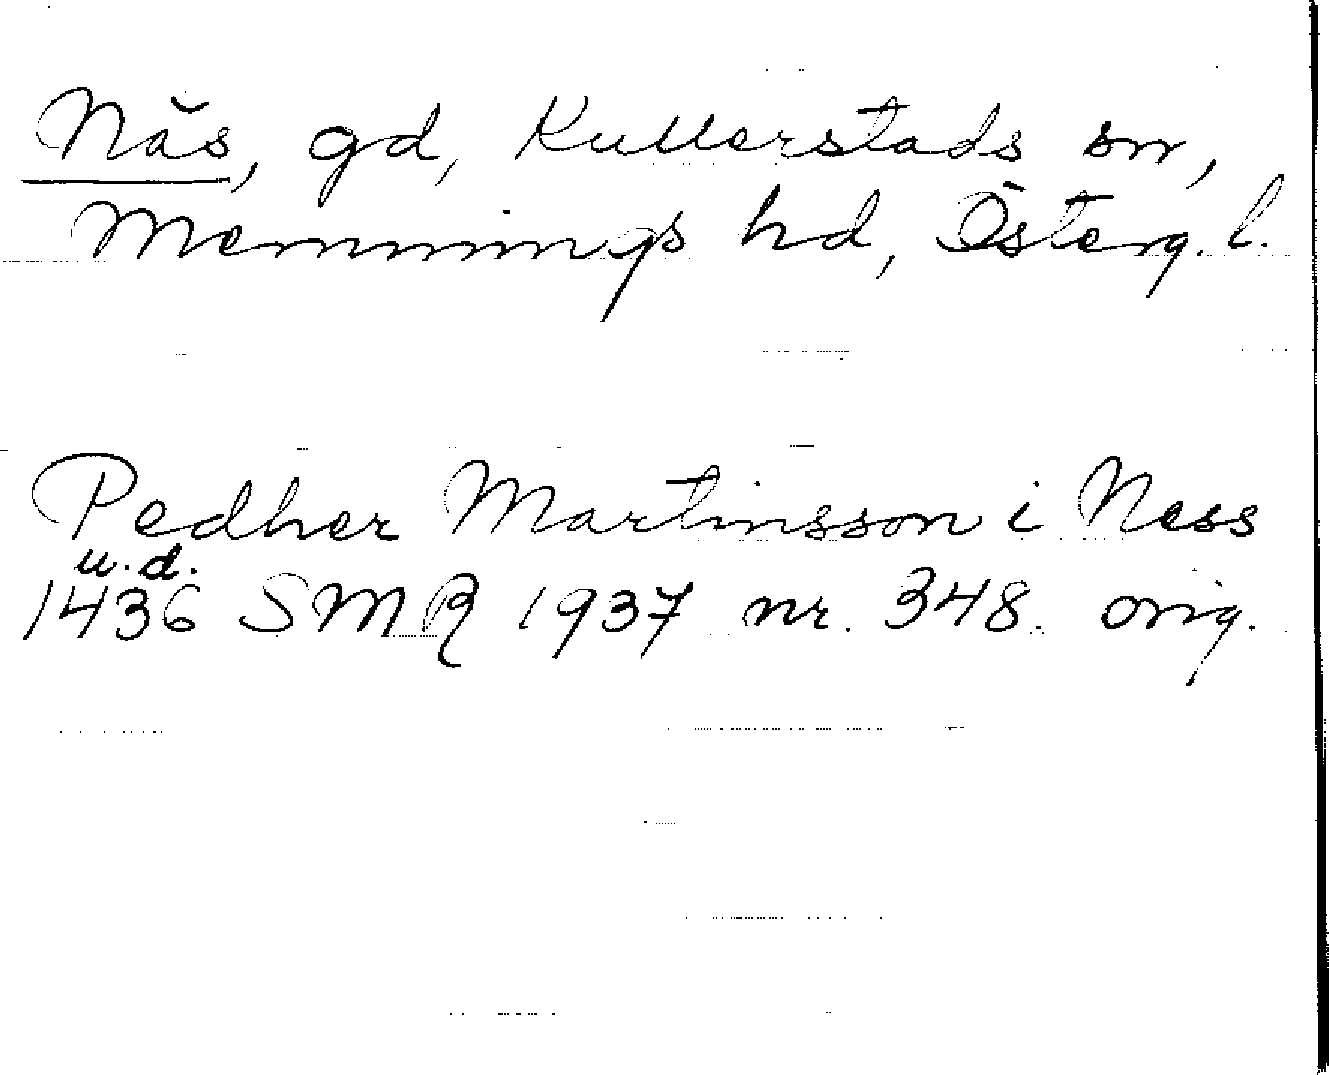 Näs, gd, Kullerstads sn,
Memmings hd, Österg. l.
Pedher Martinsson i Ness
u. d.
1436 SMR 1937 nr. 348. orig.